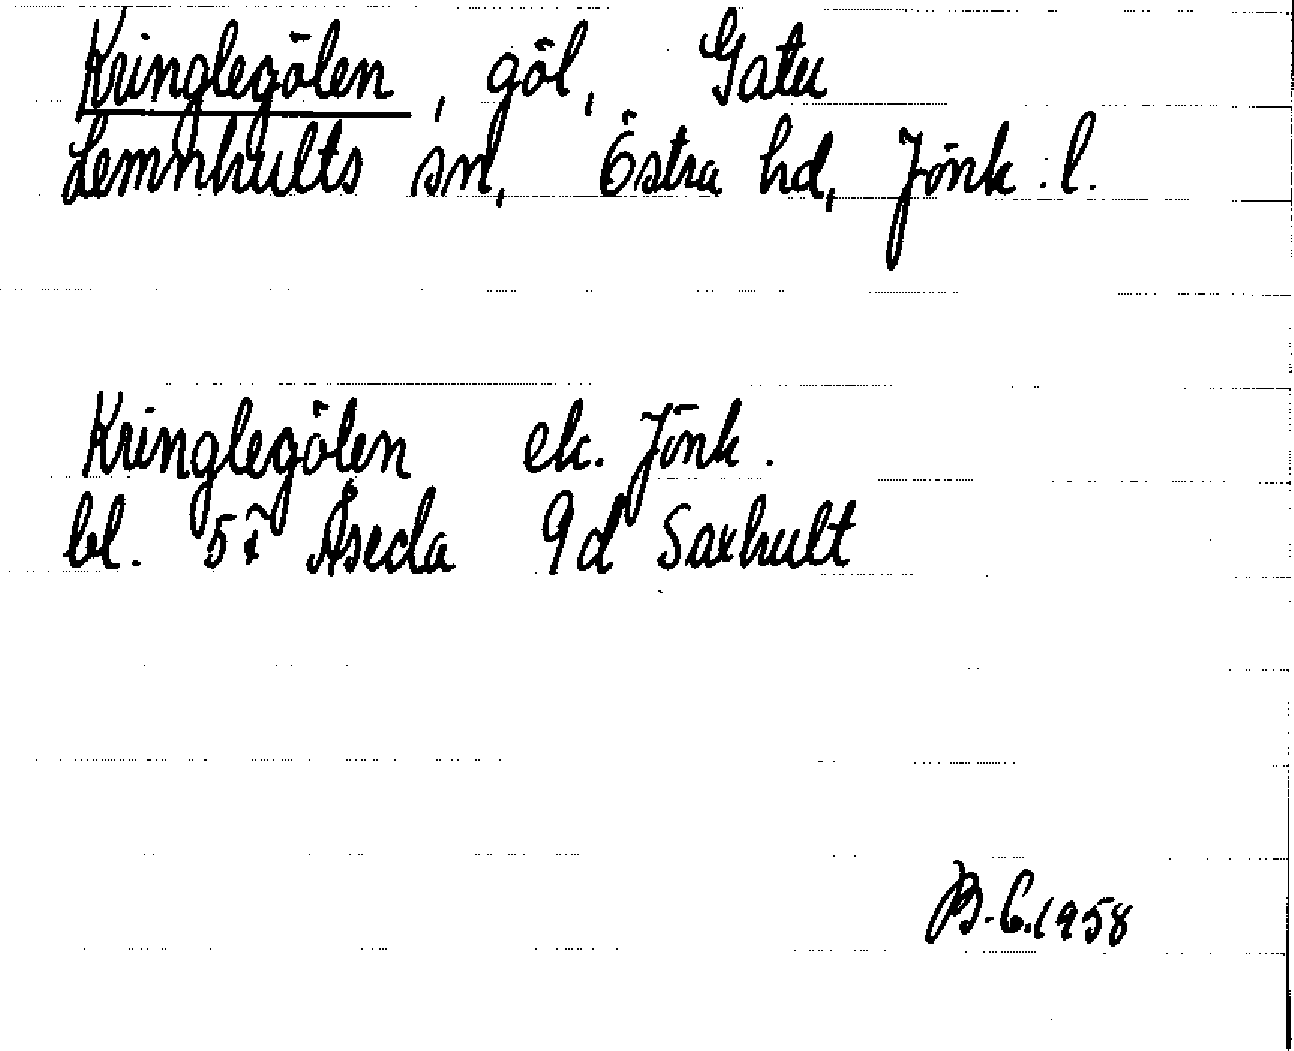 Kringlegölen, göl, Gatu
Lemnhults sn, Östra hd, Jönk. l.
Kringlegölen ek. Jönk.
bl. 5 i Åseda 9d Saxhult
B.C. 1958